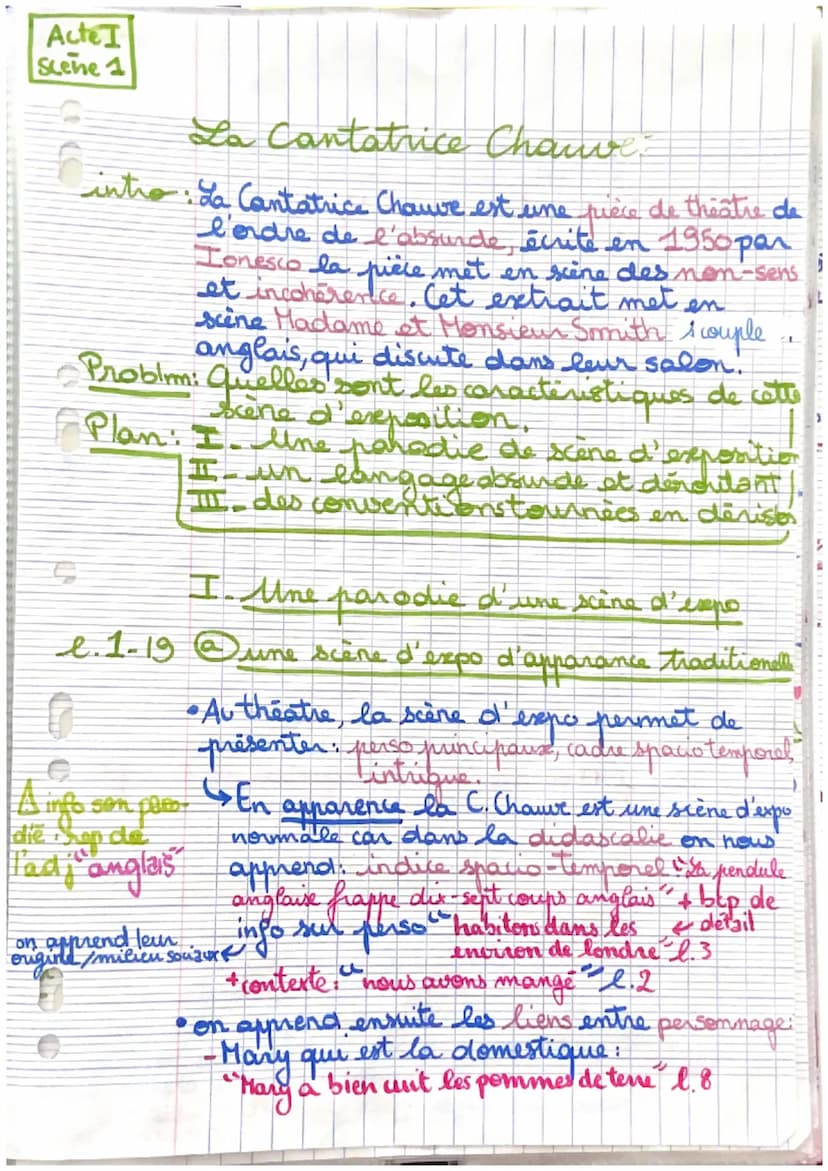 Acte I
Scène 1
La Cantatrice Chauve:
intro: La Cantatrice Chauve est une pièce de théâtre de
l'ordre de l'absurde, écrite en 1950 par
Ionesco la pièce met en scène des non-sens
et incohérence. Cet extrait met en
scène Madame et Monsieur Smith, couple
anglais, qui discute dans leur salon.
Problm: Quelles sont les caractéristiques de cette
scène d'exposition.
Plan: I - Une parodie de scène d'exposition
II - un langage absurde et déroutant
III - des conventions tournées en dérision
I - Une parodie d'une scène d'expo
l.1-19 ⓐ une scène d'expo d'apparance traditionelle
• Au théâtre, la scène d'expo permet de
présenter: perso principaux, cadre spacio temporel,
intrigue.
↳ En apparence la C. Chauve est une scène d'expo
normale car dans la didascalie on nous
apprend: indice spacio-temporel "La pendule
anglaise frappe dix-sept coups anglais" + bcp de
détail
info sur perso "habitons dans les
environ de londre" l.3
+ contexte: "nous avons mangé" l.2
⚠ info son paro-
die. Rep de
l'adj "anglais"
on apprend leur
origine/milieu sociaux
• on apprend ensuite les liens entre personnage:
- Mary qui est la domestique:
"Mary a bien cuit les pommes de terre" l.8